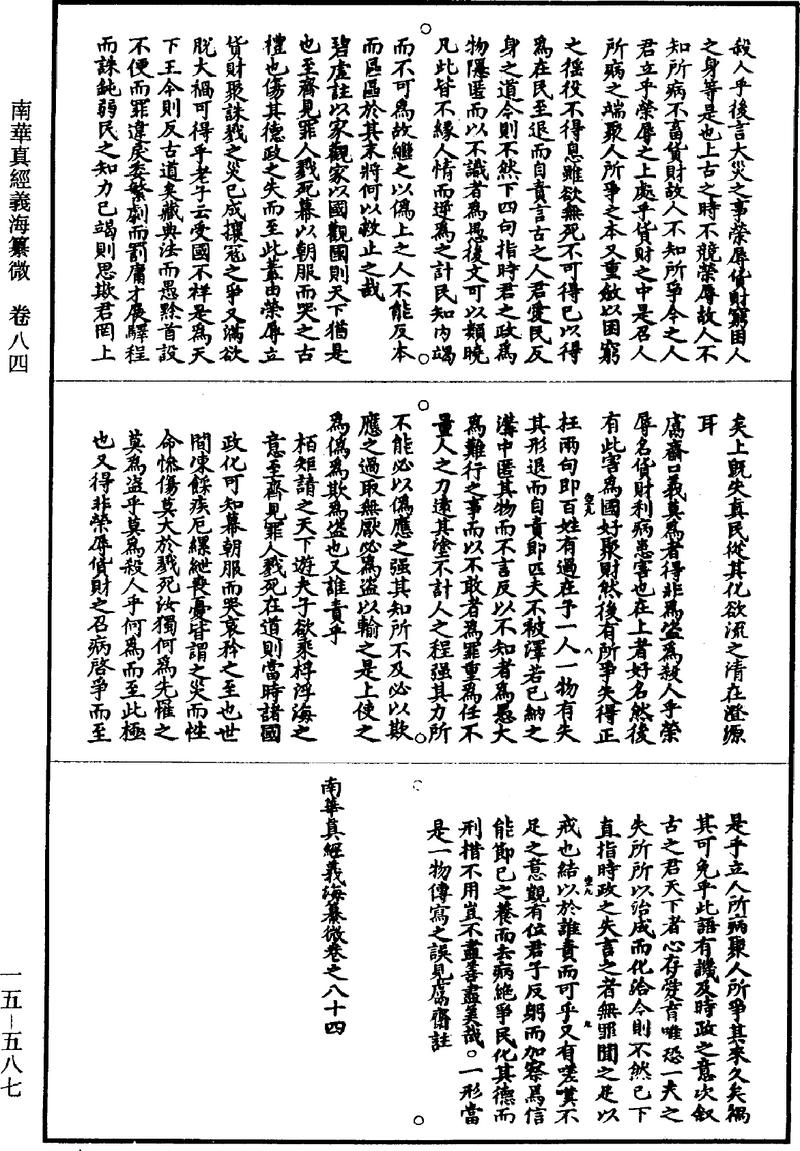 南華真經義海纂微　卷八四
一五－五八七
殺人乎後言大災之事榮辱貨財窮困人
之身等是也上古之時不競榮辱故人不
知所病不畜貨財故人不知所爭今之人
君立乎榮辱之上處乎貨財之中是召人
所病之端聚人所爭之本又重斂以困窮
之徭役不得息雖欲無死不可得已以得
為在民至退而自責言古之人君愛民反
身之道今則不然下四句指時君之政為
物隱匿而以不識者為愚後文可以類曉
凡此皆不緣人情而逆為之計民知內竭
而不可為故繼之以偽上之人不能反本
而區區於其末將何以救止之哉
碧虛註以家觀家以國觀國則天下猶是
也至齊見罪人戮死幕以朝服而哭之古
禮也傷其德政之失而至此蓋由榮辱立
貨財聚誅戮之災已成攘寇之爭又滿欲
脫大禍可得乎老子云受國不祥是為天
下王今則反古道矣藏典法而愚黔首設
不便而罪違戾委繁劇而罰庸才展驛程
而誅鈍弱民之知力已竭則思欺君罔上
矣上既失真民從其化欲流之清在澄源
耳
鬳齋口義莫為者得非為盜為殺人乎榮
辱名貨財利病患害也在上者好名然後
有此害為國好聚財然後有所爭失得正
枉兩句即百姓有過在予一人一物有失
其形退而自責即匹夫不被澤若已納之
溝中匿其物而不言反以不知者為愚大
為難行之事而以不敢者為罪重為任不
量人之力遠其塗不計人之程强其力所
不能必以偽應之强其知所不及必以欺
應之過取無厭必為盜以輸之是上使之
為偽為欺為盜也又誰責乎
栢矩請之天下遊夫子欲乘桴浮海之
意至齊見罪人戮死在道則當時諸國
政化可知幕朝服而哭哀矜之至也世
間凍餒疾厄縲紲喪憂皆謂之災而性
命慘傷莫大於戮死汝獨何為先罹之
莫為盜乎莫為殺人乎何為而至此極
也又得非榮辱貨財之召病啓爭而至
是乎立人所病聚人所爭其來久矣禍
其可免乎此語有譏及時政之意次叙
古之君天下者心存愛育唯恐一夫之
失所所以治成而化洽今則不然已下
直指時政之失言之者無罪聞之足以
戒也結以於誰責而可乎又有嗟嘆不
足之意觀有位君子反躬而加察焉信
能節已之養而去病絕爭民化其德而
刑措不用豈不盡善盡美哉。一形當
是一物傳寫之誤見鬳齋註
南華真經義海纂微卷之八十四